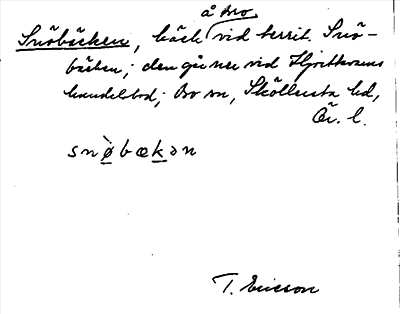 å Bro
Snöbäcken, bäck vid territ. Snö-
bäcken; den går ner vid Hjortkvarns
handelsbod; Bo sn, Sköllersta hd,
Ör. l.
snø̀bækən
T. Ericson